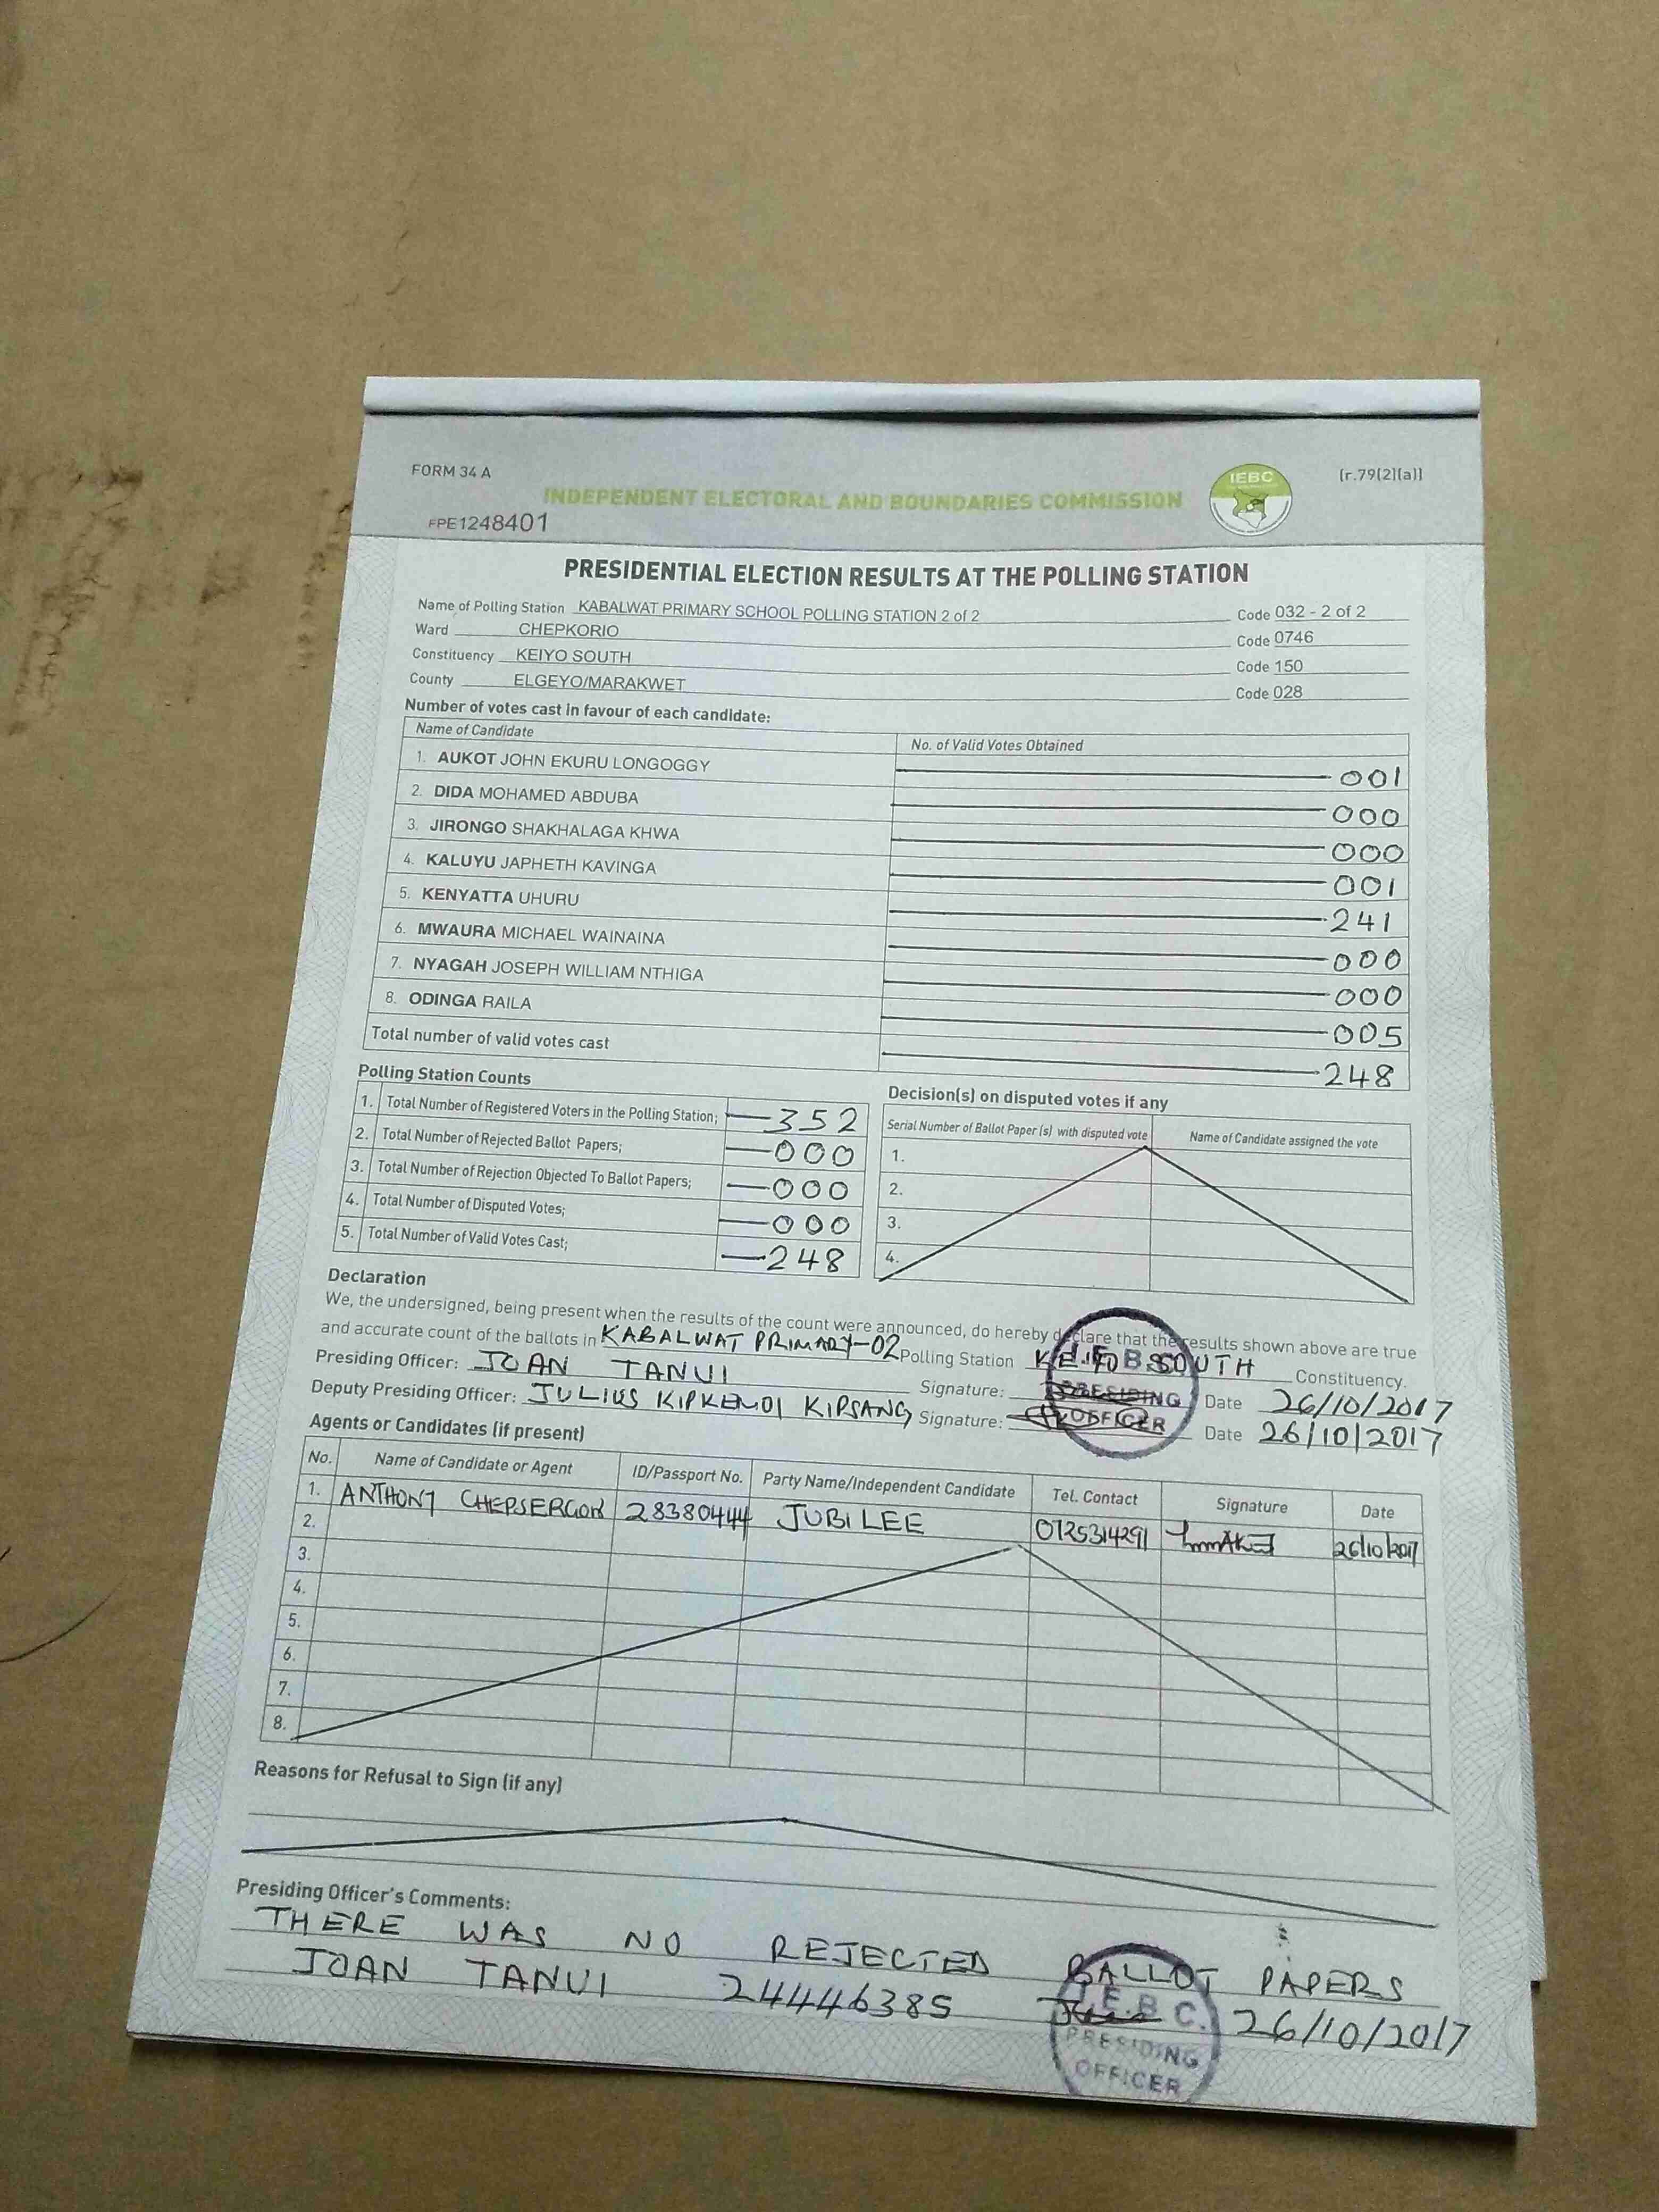 FORM 34 A
[r.79(2)(a)]
IEBC
INDEPENDENT ELECTORAL AND BOUNDARIES COMMISSION
FPE1248401
PRESIDENTIAL ELECTION RESULTS AT THE POLLING STATION
Name of Polling Station KABALWAT PRIMARY SCHOOL POLLING STATION 2 of 2 Code 032 - 2 of 2
Ward CHEPKORIO Code 0746
Constituency KEIYO SOUTH Code 150
County ELGEYO/MARAKWET Code 028
Number of votes cast in favour of each candidate:
Name of Candidate No. of Valid Votes Obtained
1. AUKOT JOHN EKURU LONGOGGY 001
2. DIDA MOHAMED ABDUBA 000
3. JIRONGO SHAKHALAGA KHWA 000
4. KALUYU JAPHETH KAVINGA 001
5. KENYATTA UHURU 241
6. MWAURA MICHAEL WAINAINA 000
7. NYAGAH JOSEPH WILLIAM NTHIGA 000
8. ODINGA RAILA 005
Total number of valid votes cast 248
Polling Station Counts
1. Total Number of Registered Voters in the Polling Station; 352
2. Total Number of Rejected Ballot Papers; 000
3. Total Number of Rejection Objected To Ballot Papers; 000
4. Total Number of Disputed Votes; 000
5. Total Number of Valid Votes Cast; 248
Decision(s) on disputed votes if any
Serial Number of Ballot Paper (s) with disputed vote Name of Candidate assigned the vote
1.
2.
3.
4.
Declaration
We, the undersigned, being present when the results of the count were announced, do hereby declare that the results shown above are true
and accurate count of the ballots in KABALWAT PRIMARY-02 Polling Station KEIYO SOUTH Constituency.
Presiding Officer: JOAN TANUI Signature: Date 26/10/2017
Deputy Presiding Officer: JULIUS KIPKEMOI KIPSANG Signature: Date 26/10/2017
I.E.B.C.
PRESIDING
OFFICER
Agents or Candidates (if present)
No. Name of Candidate or Agent ID/Passport No. Party Name/Independent Candidate Tel. Contact Signature Date
1. ANTHONY CHEPSERGON 28380444 JUBILEE 0725314291 26/10/2017
2.
3.
4.
5.
6.
7.
8.
Reasons for Refusal to Sign (if any)
Presiding Officer's Comments:
THERE WAS NO REJECTED BALLOT PAPERS
JOAN TANUI 24446385 26/10/2017
I.E.B.C.
PRESIDING
OFFICER